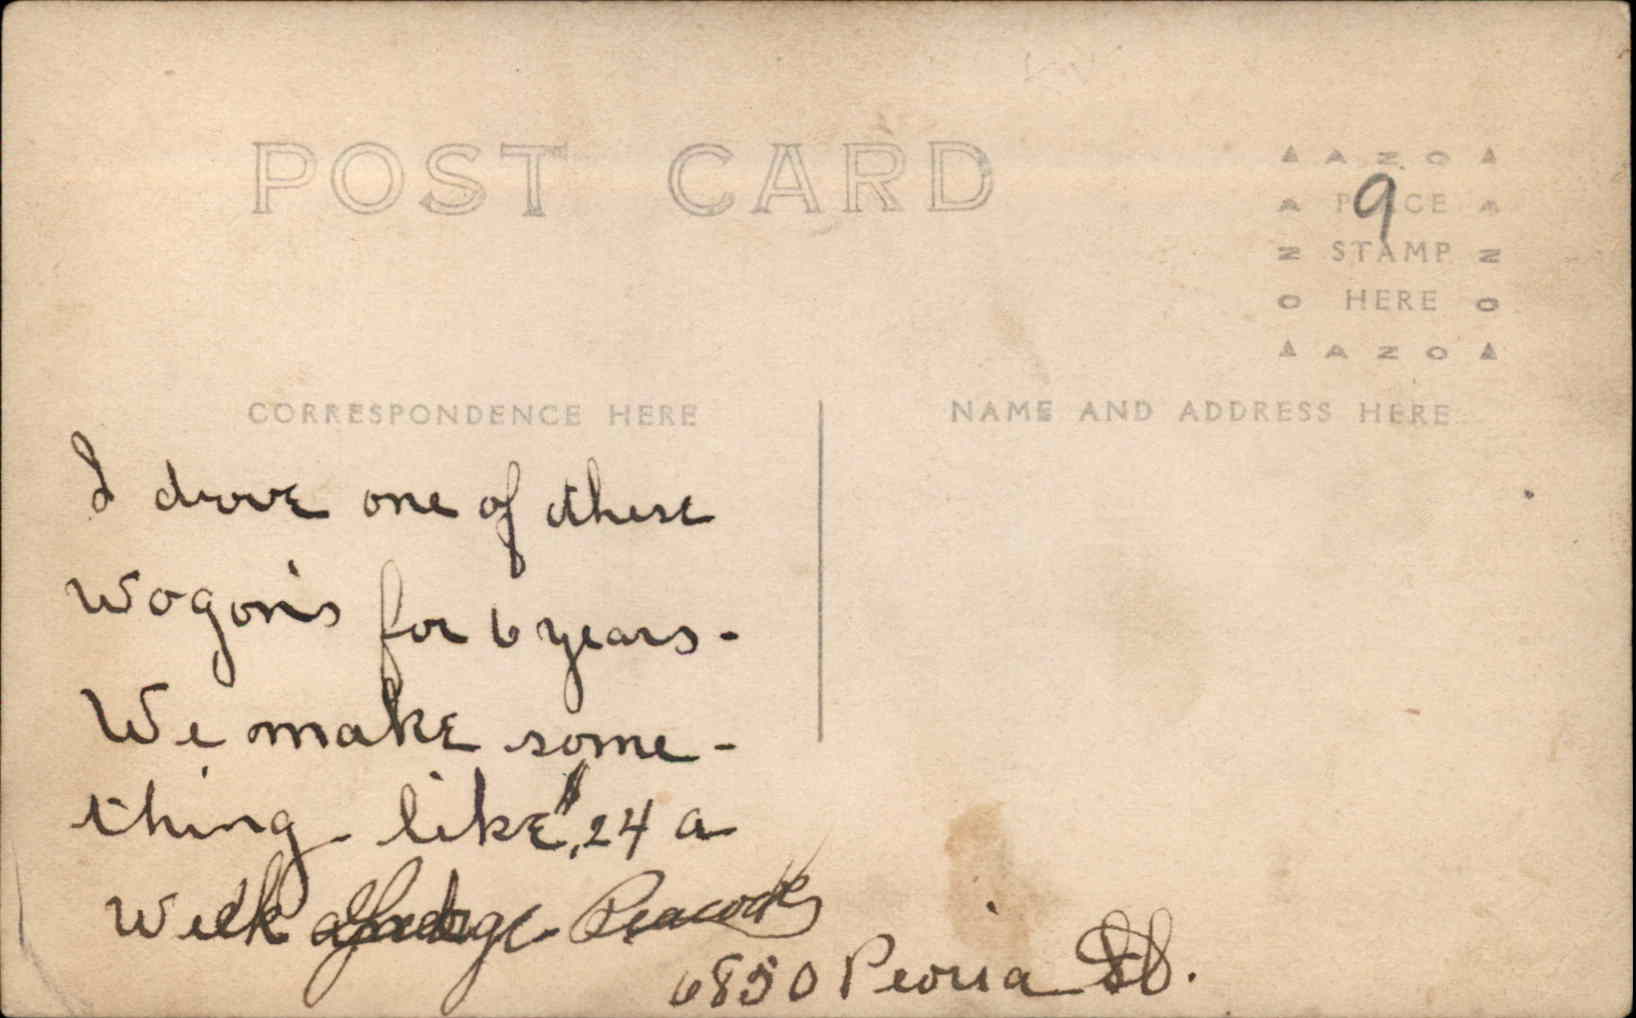 POST CARD
AZO
PLACE
STAMP
HERE
AZO
9
CORRESPONDENCE HERE
NAME AND ADDRESS HERE
I drove one of these
Wagons for 6 years -
We make some -
thing like $24 a
Week George Peacock
6850 Peoria St.